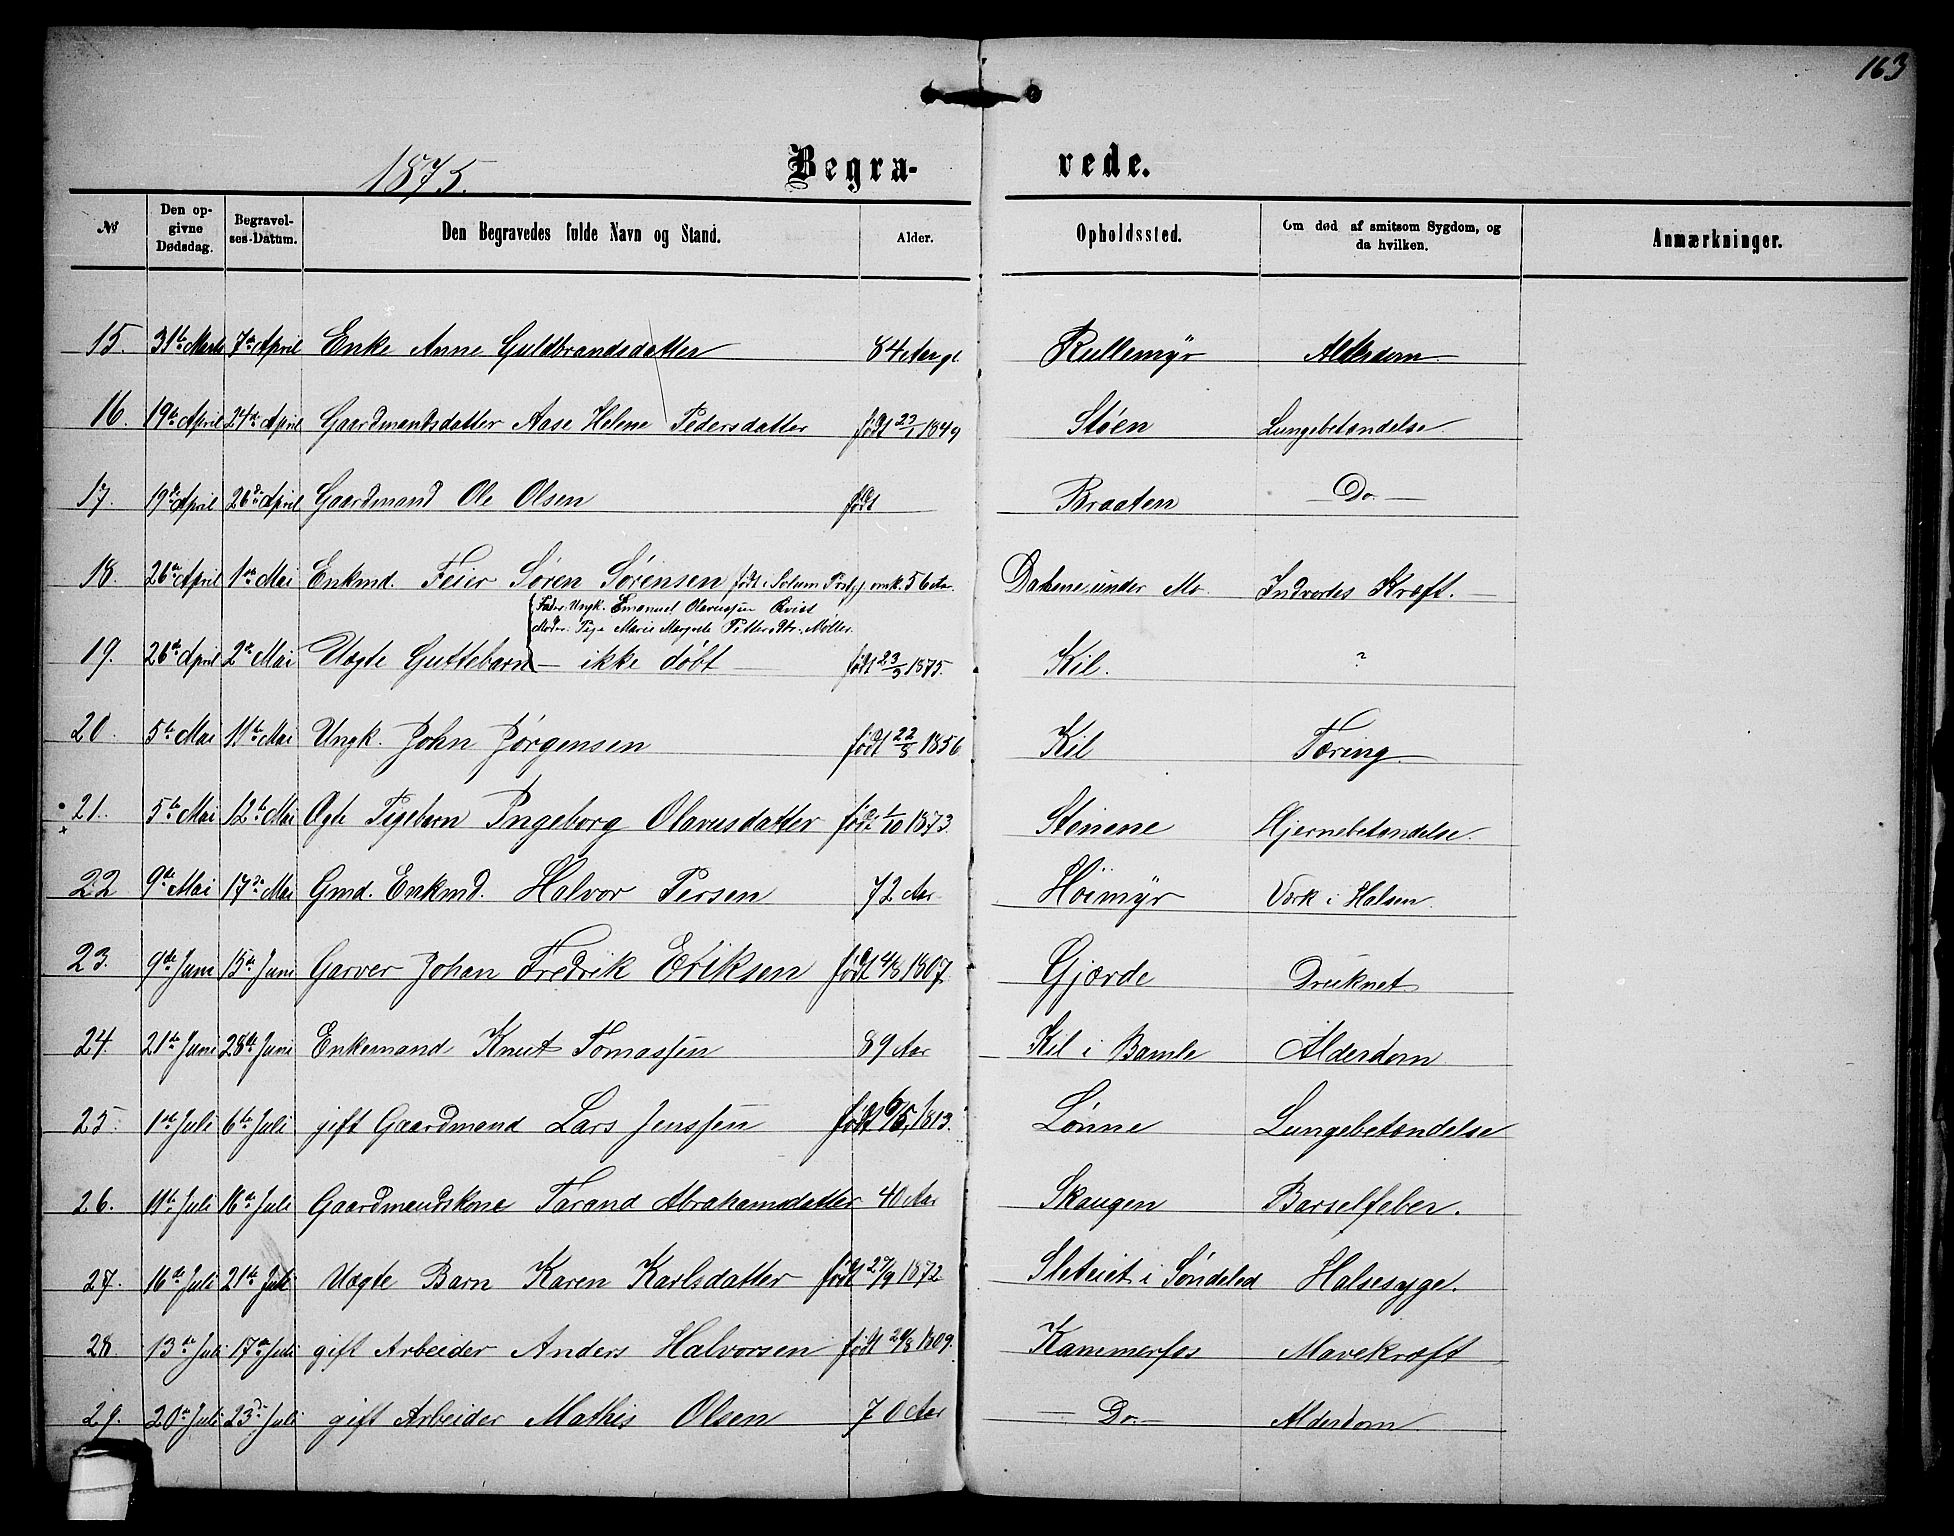 163
1875.
Begra-
vede.
№
Den op-
givne
Dødsdag.
Begravel-
ses-Datum.
Den Begravedes fulde Navn og Stand.
Alder.
Opholdssted.
Om død af smitsom Sygdom, og
da hvilken.
Anmærkninger.
15. 31te Marts 7de April Enke Anne Guldbrandsdatter 84 Aar gl. Rullemyr Alderdom
16. 19de April 24de April Gaardmandsdatter Aase Helene Pedersdatter født 23/1 1849 Støen Lungebetændelse
17. 19de April 26de April Gaardmand Ole Olsen født Braaten Do.
18. 26de April 1ste Mai Enkmd. Feier Søren Sørensen født i Solum Prstgj omk. 56 Aar. under Mo. Indvortes Kræft.
Fader: Ungk. Emanuel Olavussen Qvist
Moder: Pige Marie Margrete Pettersdtr. Møller.
19. 26de April 2de Mai Uægte Guttebarn - ikke døbt - født 23/3 1875. Kil. ?
20. 5te Mai 11te Mai Ungk. John Jørgensen født 22/3 1856 Kil Tæring
21. 5te Mai 12te Mai Ægte Pigebarn Ingeborg Olavusdatter født 1/10 1873. Stenene Hjernebetændelse.
22 9de Mai 17de Mai Gmd. Enkmd. Halvor Persen 72 Aar Høimyr Værk i Halsen.
23. 9de Juni 15de Juni Garver Johan Fredrik Eriksen født 4/8 1807. Gjærde Druknet
24. 21de Juni 28de Juni Enkemand Knut Tomassen 89 Aar Kil i Bamle Alderdom
25. 1ste Juli 6te Juli gift Gaardmand Lars Jenssen født 6/5 1813. Lønne Lungebetændelse
26. 11te Juli 16de Juli Gaardmandskone Tarand Abrahamsdatter 40 Aar Skaugen Barselfeber.
27. 16de Juli 21de Juli Uægte Barn Karen Karlsdatter født 27/9 1872 Sleteiet i Søndeled Halsesyge.
28. 13de Juli 17de Juli gift Arbeider Anders Halvorsen født 29/8 1809. Kammerfos Mavekræft
29. 20de Juli 23de Juli gift Arbeider Mathis Olsen 70 Aar Do. Alderdom